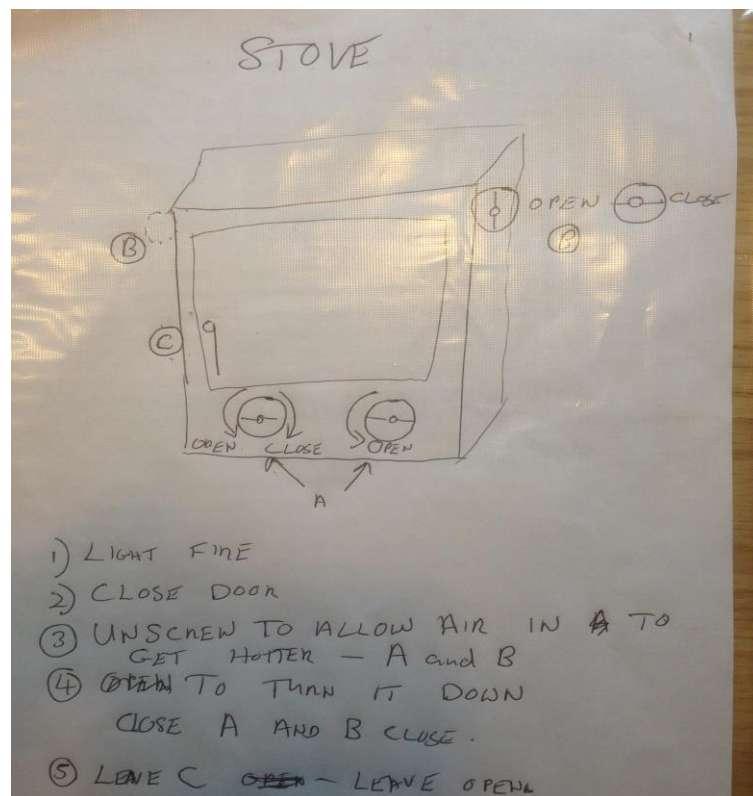 STOVE
OPEN CLOSE
B
B
C
OPEN CLOSE OPEN
A
1) LIGHT FIRE
2) CLOSE DOOR
3 UNSCREW TO ALLOW AIR IN TO
GET HOTTER - A and B
4 TO TURN IT DOWN
CLOSE A AND B CLOSE.
5 LEAVE C - LEAVE OPEN